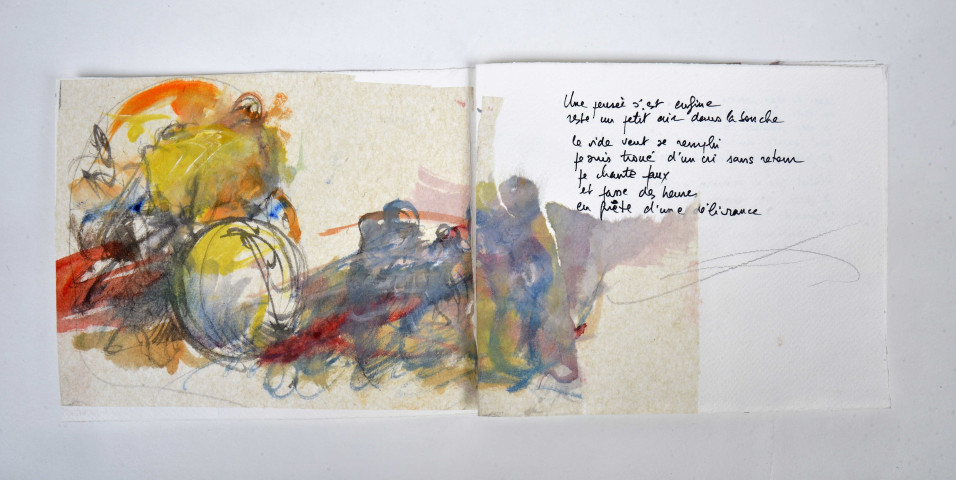 Une pensée s'est enfuie
reste un petit air dans la bouche
le vide veut se remplir
je suis troué d'un cri sans retour
je chante faux
et passe des heures
en quête d'une délivrance